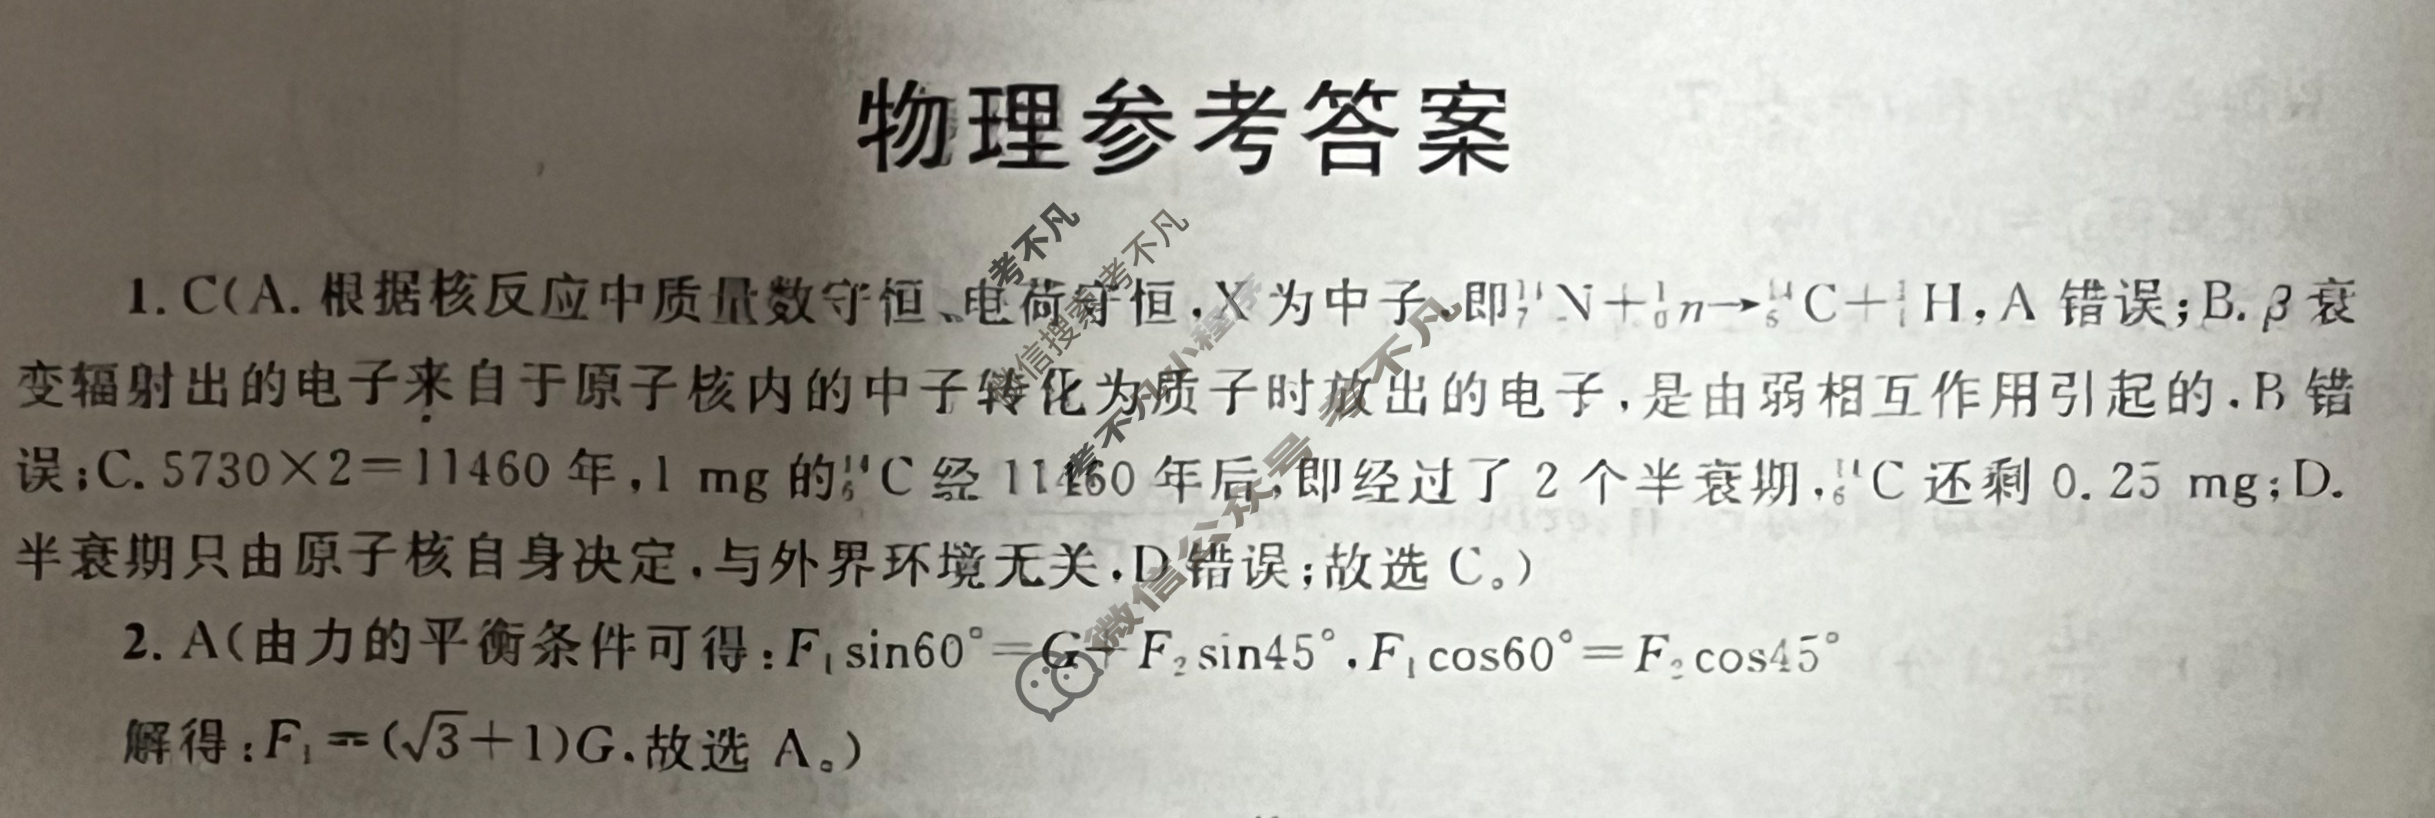 物理参考答案
1. C(A. 根据核反应中质量数守恒、电荷守恒,X 为中子,即¹⁴₇N+¹₀n→¹⁴₆C+¹₁H,A 错误;B. β衰
变辐射出的电子来自于原子核内的中子转化为质子时放出的电子,是由弱相互作用引起的,B 错
误;C. 5730×2=11460 年,1 mg 的¹⁴₆C 经 11460 年后,即经过了 2 个半衰期,¹⁴₆C 还剩 0.25 mg;D.
半衰期只由原子核自身决定,与外界环境无关,D 错误;故选 C。)
2. A(由力的平衡条件可得:F₁sin60°=G+F₂sin45°,F₁cos60°=F₂cos45°
解得:F₁=(√3+1)G,故选 A。)
微信搜索 考不凡
考不凡小程序
微信公众号 考不凡
考不凡